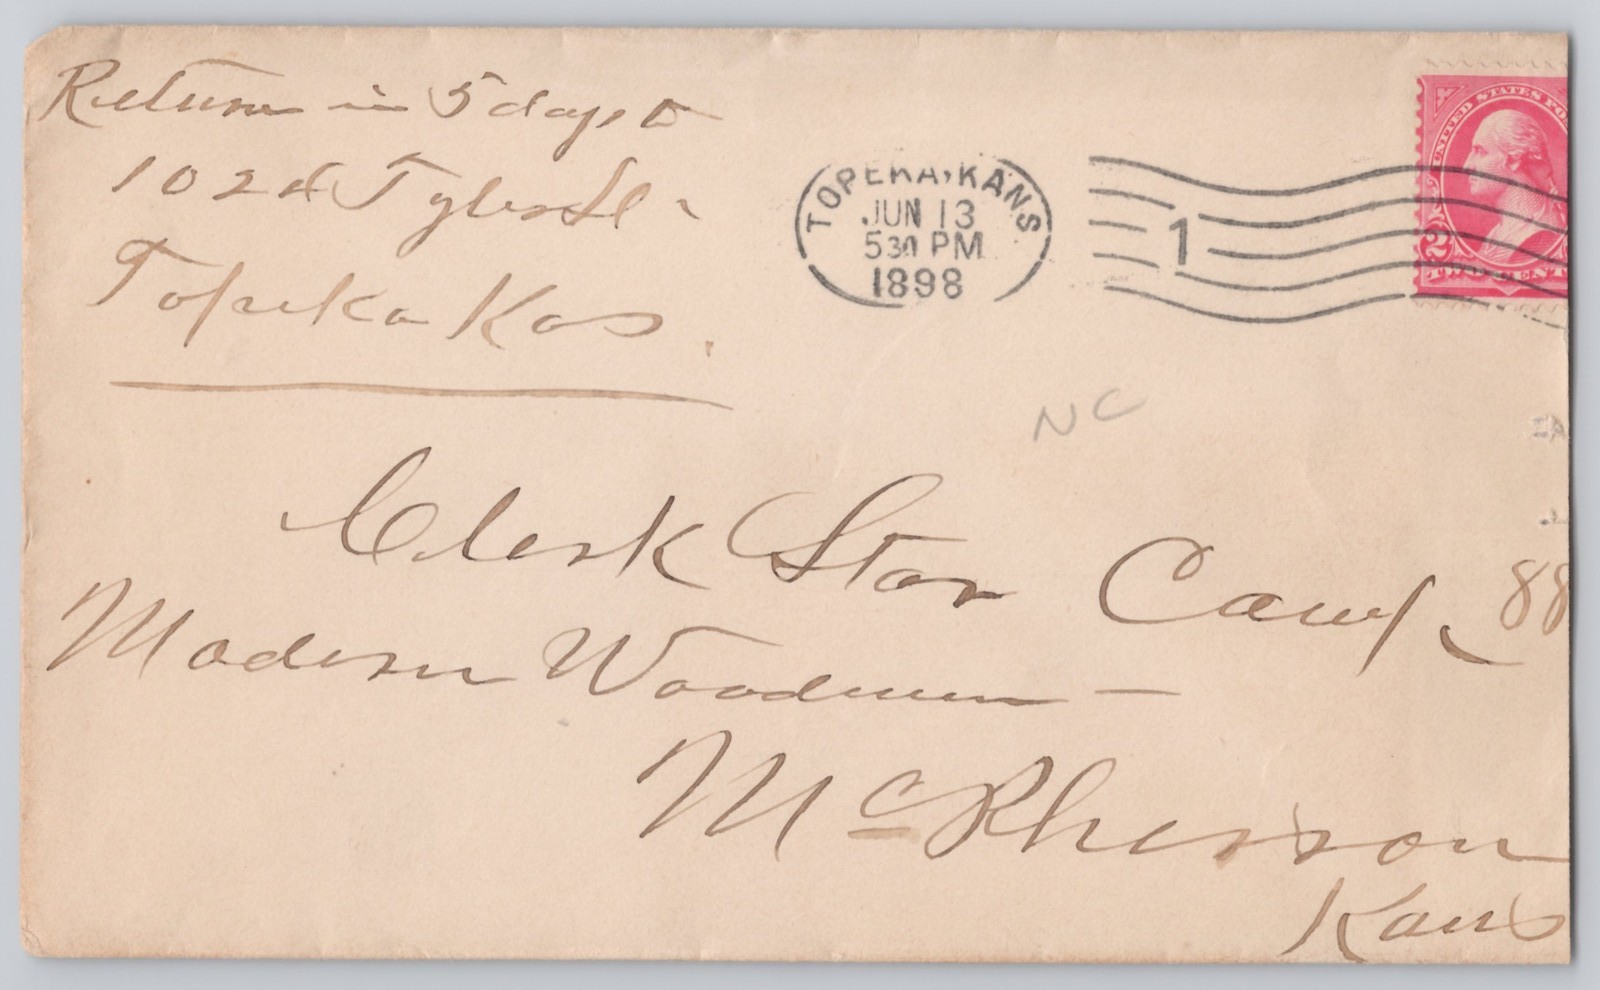 Return in 5 days to
1024 Tyler St.
Topeka Kas.
TOPEKA, KANS
JUN 13
530 PM
1898
1
UNITED STATES PO
2
TWO CENT
NC
Clerk Star Camp, 88
Modern Woodmen —
McPherson
Kans